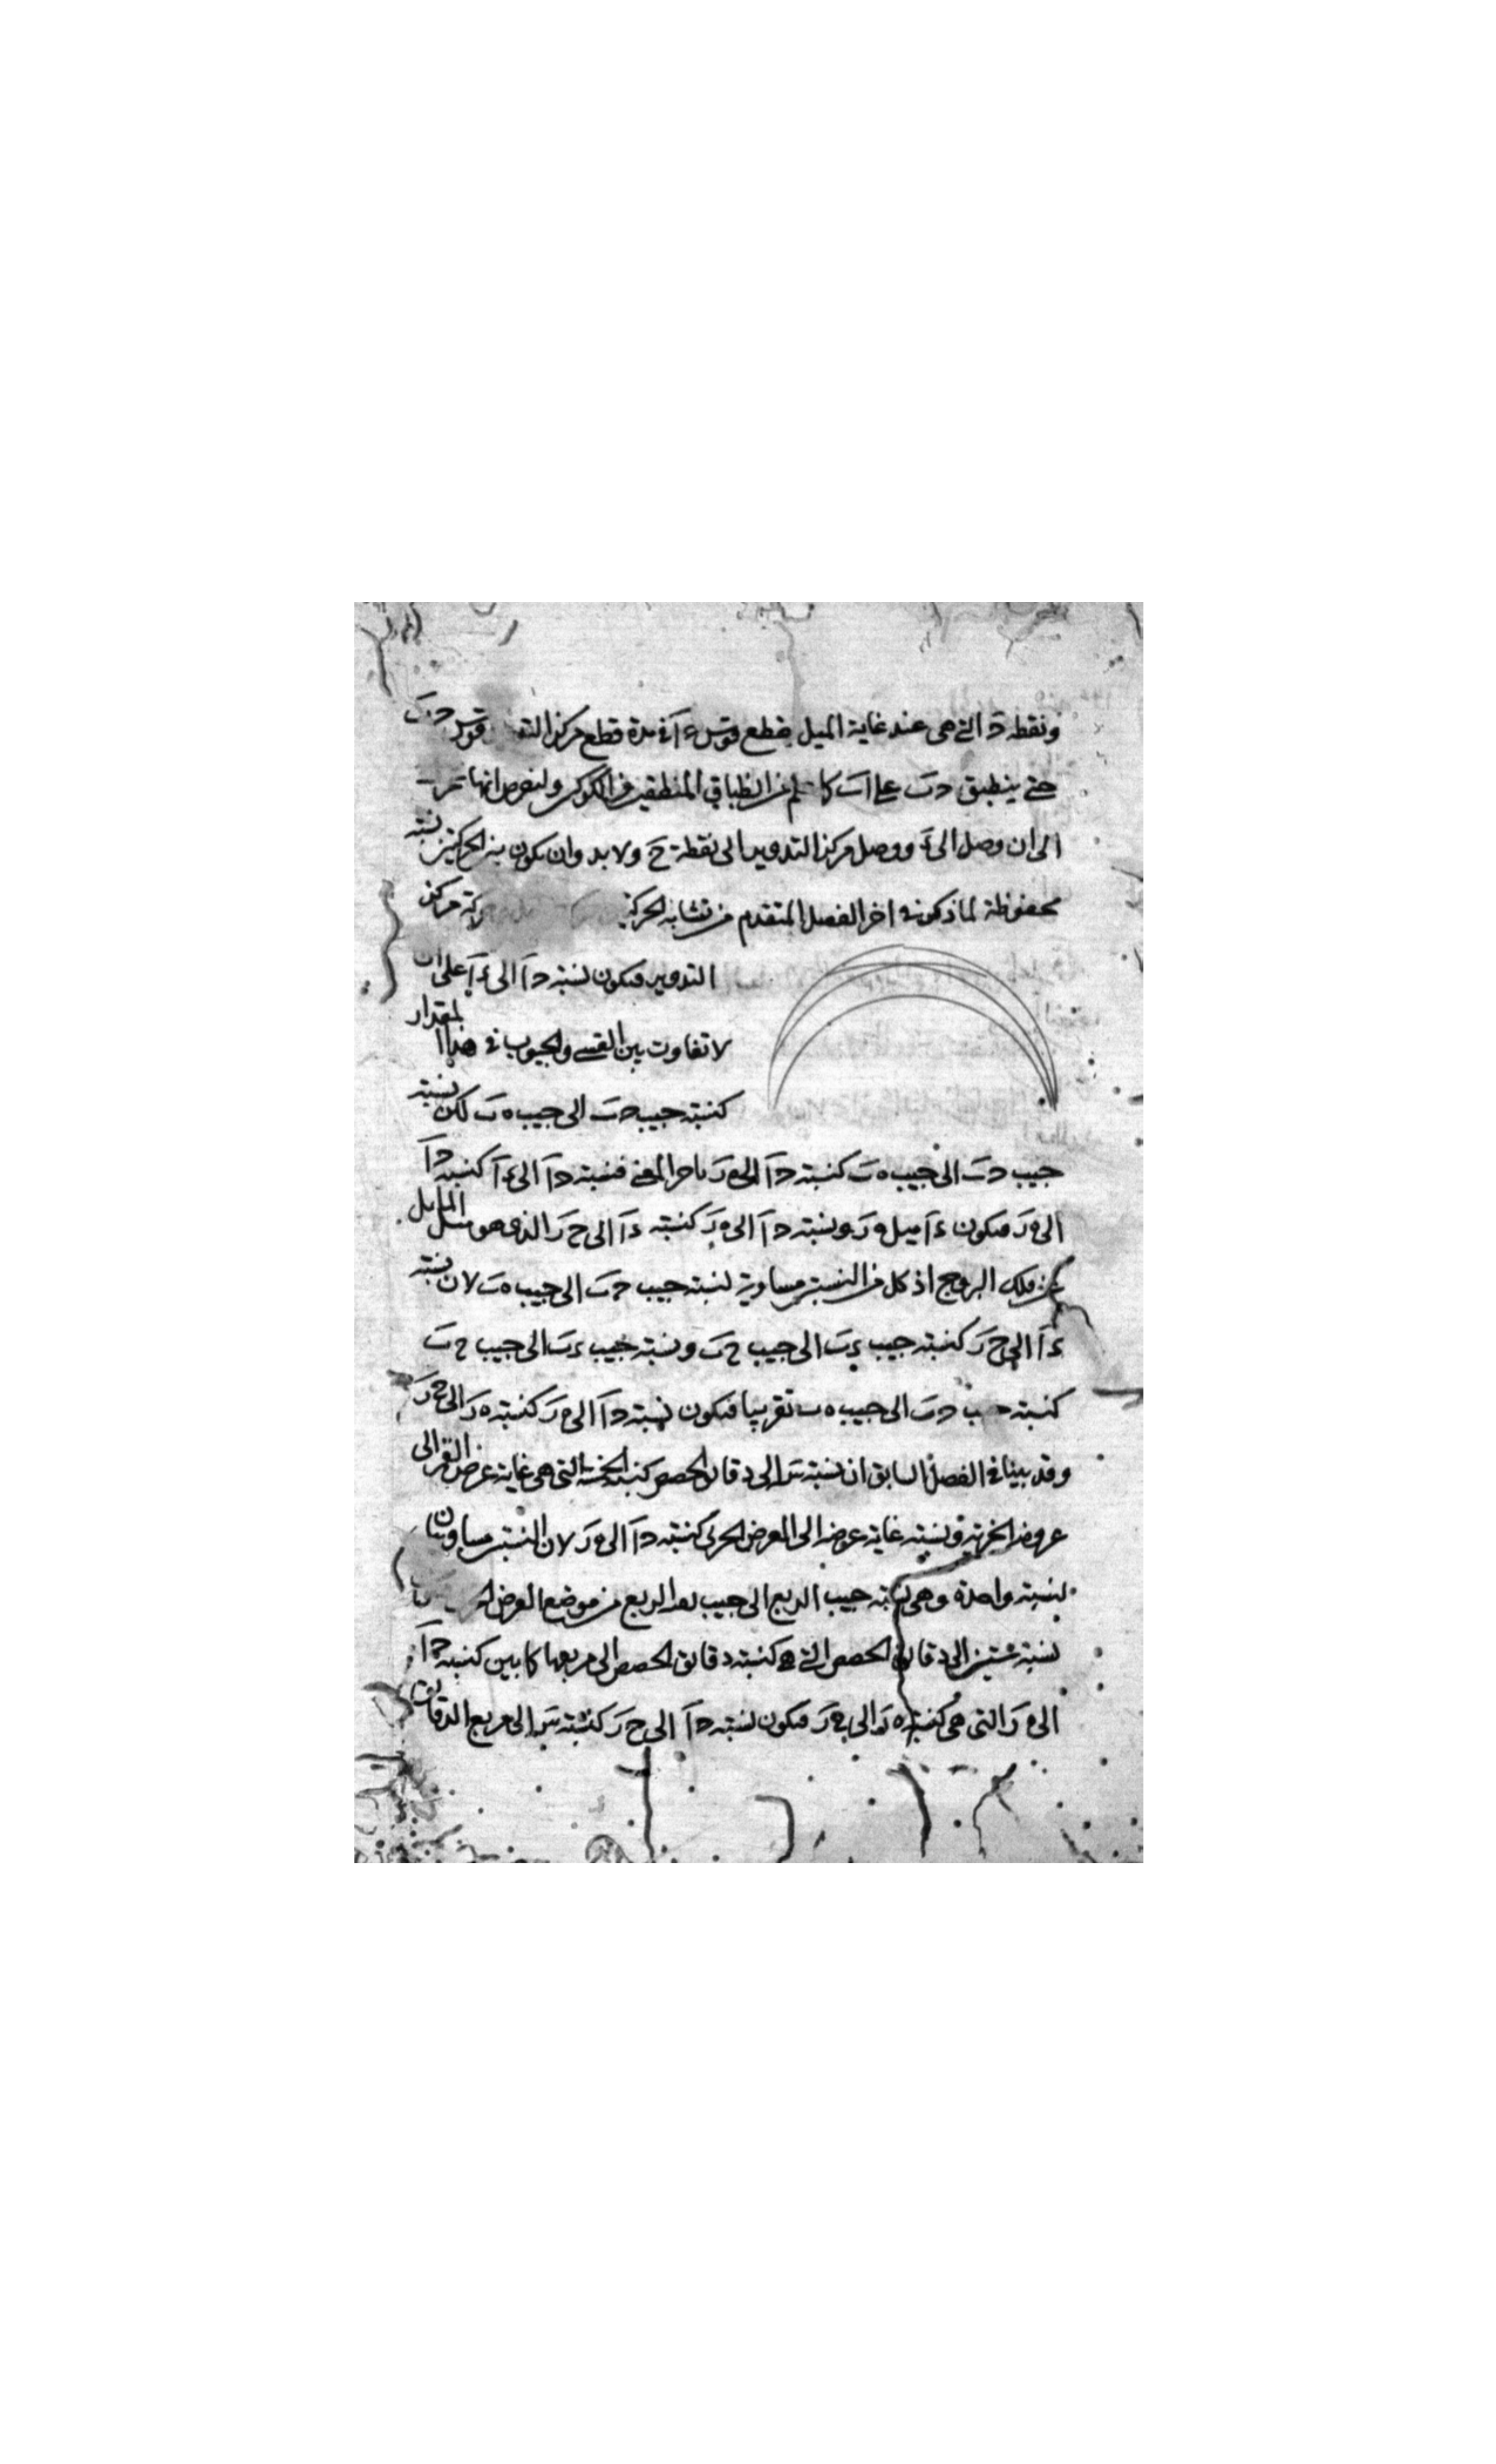 ونقطة د التي هى عند غاية الميل يقطع قوس ء ا فى مدة قطع مركز قوس د ب
حتى ينطبق د ب على ا ب كما علم من انطباق المنطقتين فى الكوكبين ولنفرض انها
الى ان وصل الى ء ووصل مركز التدوير الى نقطة ح ولا بد وان يكون بين الحركتين نسبة
محفوظة لما ذكر فى اخر الفصل المتقدم من تشابه مركز
التدوير فيكون نسبة د ا الى ء ا على ان
لا تفاوت بين القسى والجيوب فى هذا المقدار
كنسبة جيب د ب الى جيب ه ب لكن نسبة
جيب د ب الى جيب ه ب كنسبة د ا الى ه ر فنسبة د ا الى ء ا كنسبة د ا
الى ه ر فيكون ء ا ميل ه ر ونسبة د ا الى ه ر كنسبة ء ا الى ح ر الذى هو ميل المايل
عن فلك البروج اذ كل من النسبتين مساوية لنسبة جيب د ب الى جيب ه ب لان نسبة
ء ا الى ح ر كنسبة جيب ء ب الى جيب ح ب ونسبة جيب ء ب الى جيب ح ب
كنسبة جيب د ب الى جيب ه ب تقريبا فيكون نسبة د ا الى ه ر كنسبة ه ر الى ح ر
وقد بينا فى الفصل السابق ان نسبة س الى دقايق الحصص كنسبة الخمسة التى هى غاية عرض القمر الى
عروضه الجزئية ونسبة غاية عرضه الى العرض الجزئى كنسبة د ا الى ه ر لان النسبتين مساويتان
لنسبة واحدة وهى نسبة جيب الربع الى جيب بعد الربع من موضع العرض
نسبة ستين الى دقايق الحصص التى هى كنسبة دقايق الحصص الى مربعها كما بين كنسبة د ا
الى ه ر التى هى كنسبة ه ر الى ح ر فيكون نسبة د ا الى ح ر كنسبة س الى مربع الدقايق